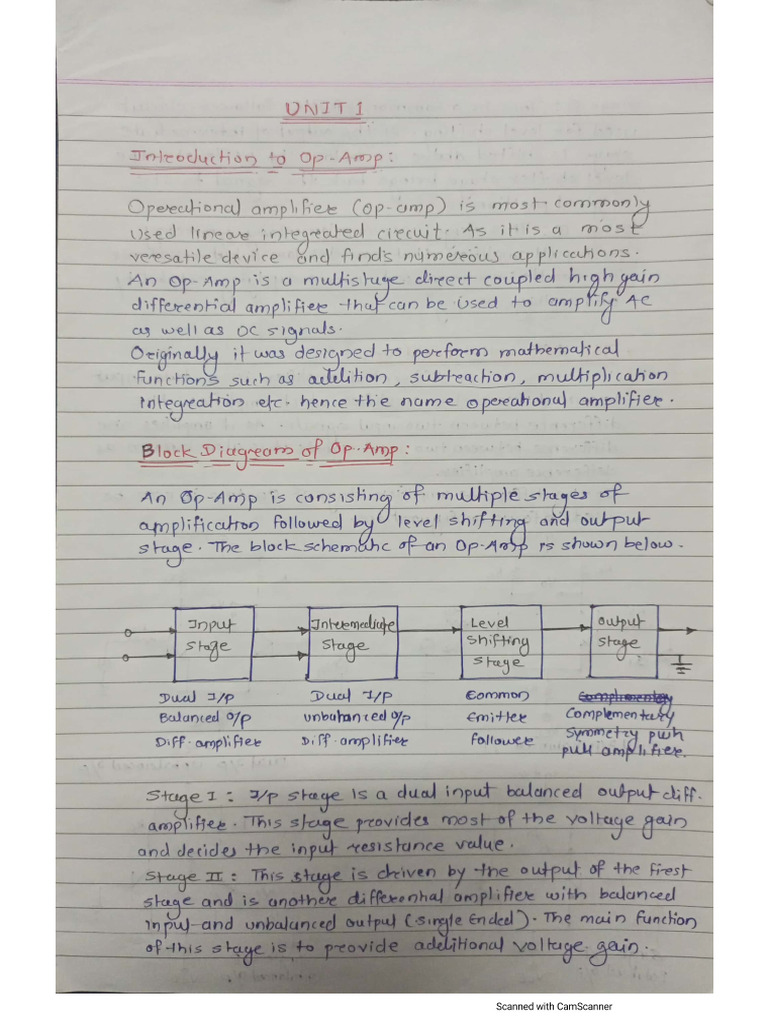 UNIT 1
Introduction to Op-Amp:
Operational amplifier (op-amp) is most commonly
used linear integrated circuit. As it is a most
versatile device and finds numerous applications.
An Op-Amp is a multistage direct coupled high gain
differential amplifier that can be used to amplify AC
as well as DC signals.
Originally it was designed to perform mathematical
functions such as addition, subtraction, multiplication
integration etc. hence the name operational amplifier.
Block Diagram of Op-Amp:
An Op-Amp is consisting of multiple stages of
amplification followed by level shifting and output
stage. The block schematic of an Op-Amp is shown below.
Input Stage
Intermediate Stage
Level Shifting Stage
Output Stage
Dual I/p Balanced o/p Diff. amplifier
Dual I/p unbalanced o/p Diff. amplifier
Common Emitter follower
Complementary Symmetry push pull amplifier.
Stage I : I/p stage is a dual input balanced output diff.
amplifier. This stage provides most of the voltage gain
and decides the input resistance value.
Stage II : This stage is driven by the output of the first
stage and is another differential amplifier with balanced
input and unbalanced output (Single Ended). The main function
of this stage is to provide additional voltage gain.
Scanned with CamScanner